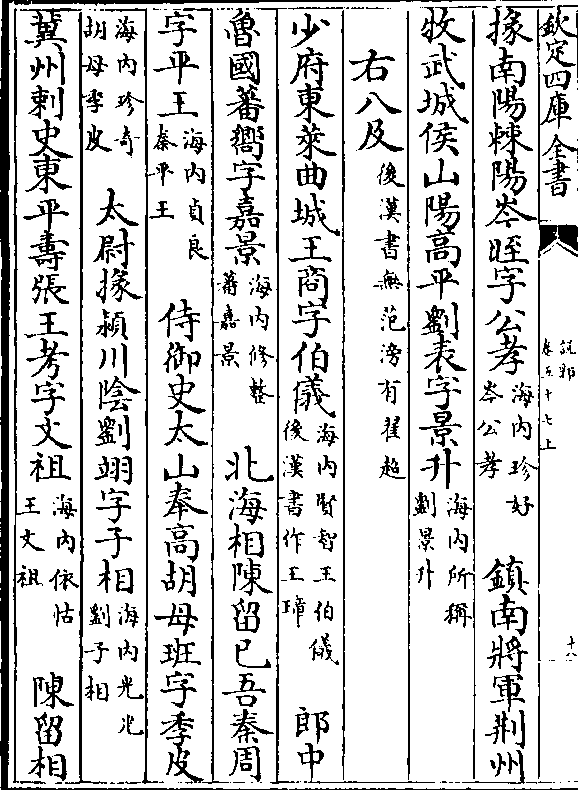 欽定四庫全書
說郛
卷五十七上
十八
掾南陽棘陽岑晊字公孝海內珍好岑公孝 鎮南將軍荆州
牧武城侯山陽高平劉表字景升海內所稱劉景升
右八及後漢書無范滂有翟超
少府東萊曲城王商字伯儀海內賢智王伯儀後漢書作王璋 郎中
魯國蕃嚮字嘉景海內修整蕃嘉景 北海相陳留巳吾秦周
字平王海內貞良秦平王 侍御史太山奉高胡母班字季皮
海內珍奇胡母季皮 太尉掾潁川陰劉翊字子相海內光光劉子相
冀州刺史東平壽張王考字文祖海內依怙王文祖 陳留相